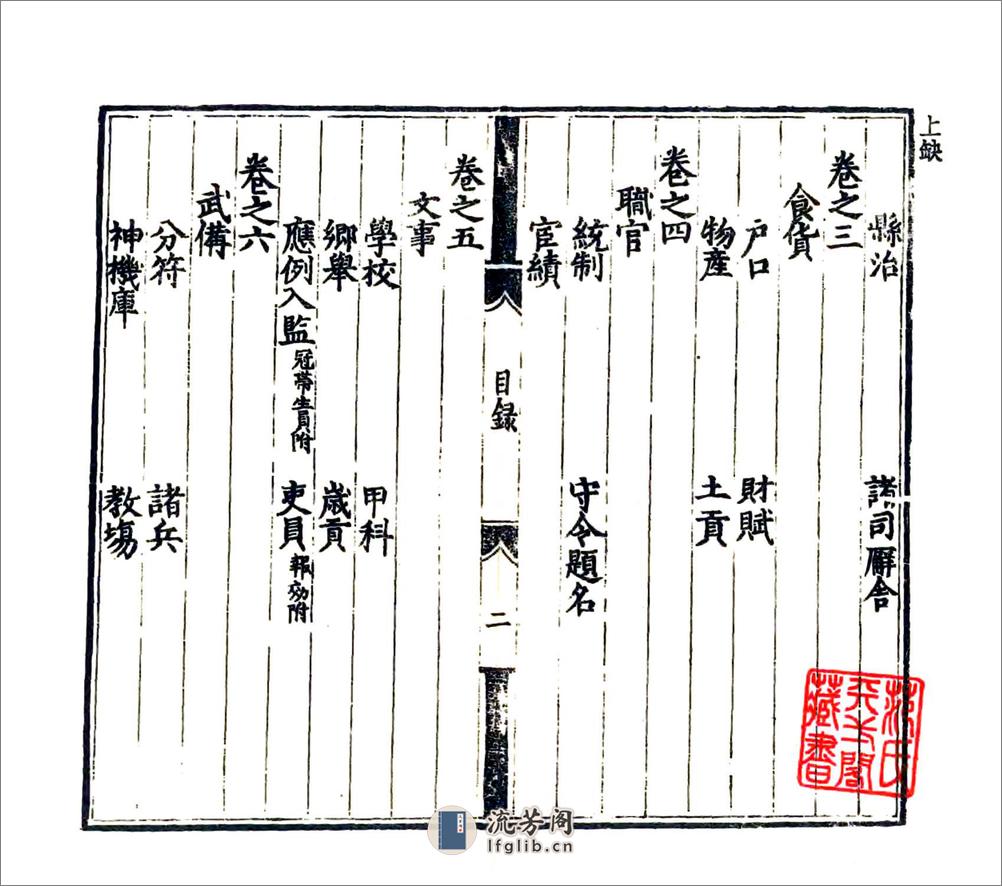 上缺
縣治 諸司廨舍
卷之三
食貨
戶口 財賦
物產 土貢
卷之四
職官
統制 守令題名
宦績
目録
二
卷之五
文事
學校 甲科
鄉舉 歲貢
應例入監 冠帶生員附 吏員 報効附
卷之六
武備
分符 諸兵
神機庫 教場
范氏天一閣藏書
流芳阁
lfglib.cn